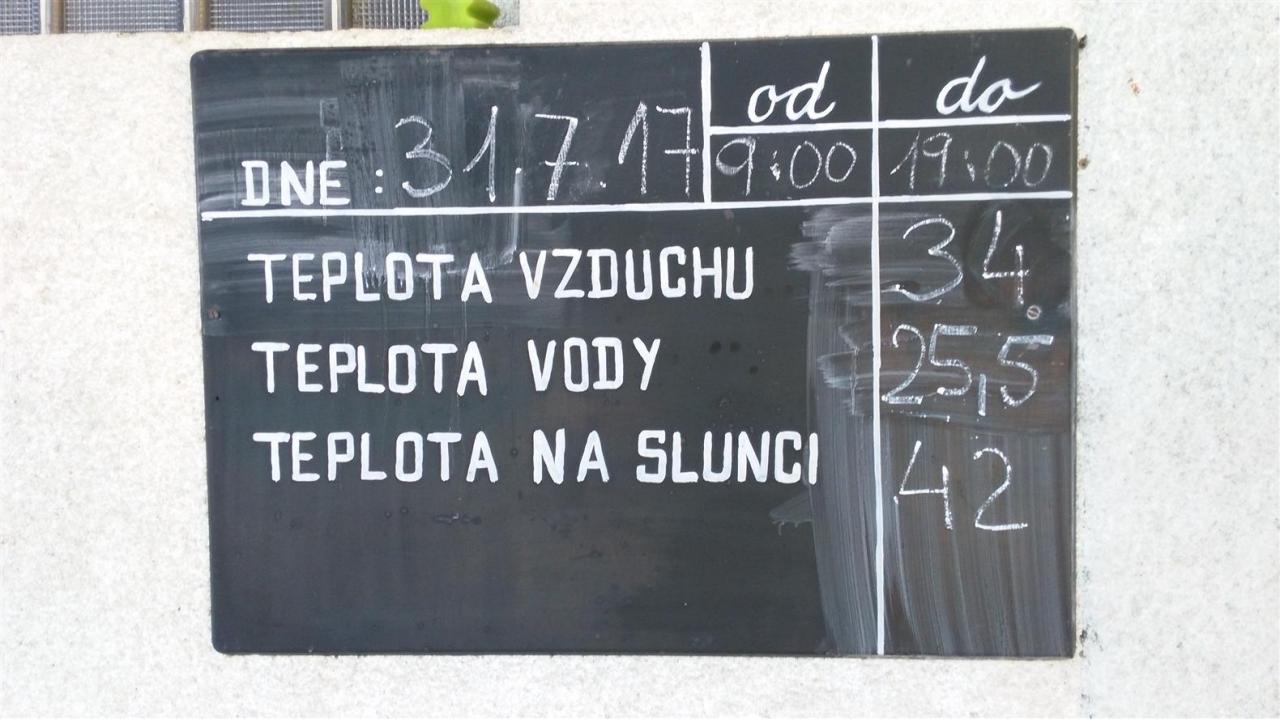 od do
DNE: 31.7.17 9:00 19:00
TEPLOTA VZDUCHU 34
TEPLOTA VODY 25,5
TEPLOTA NA SLUNCI 42